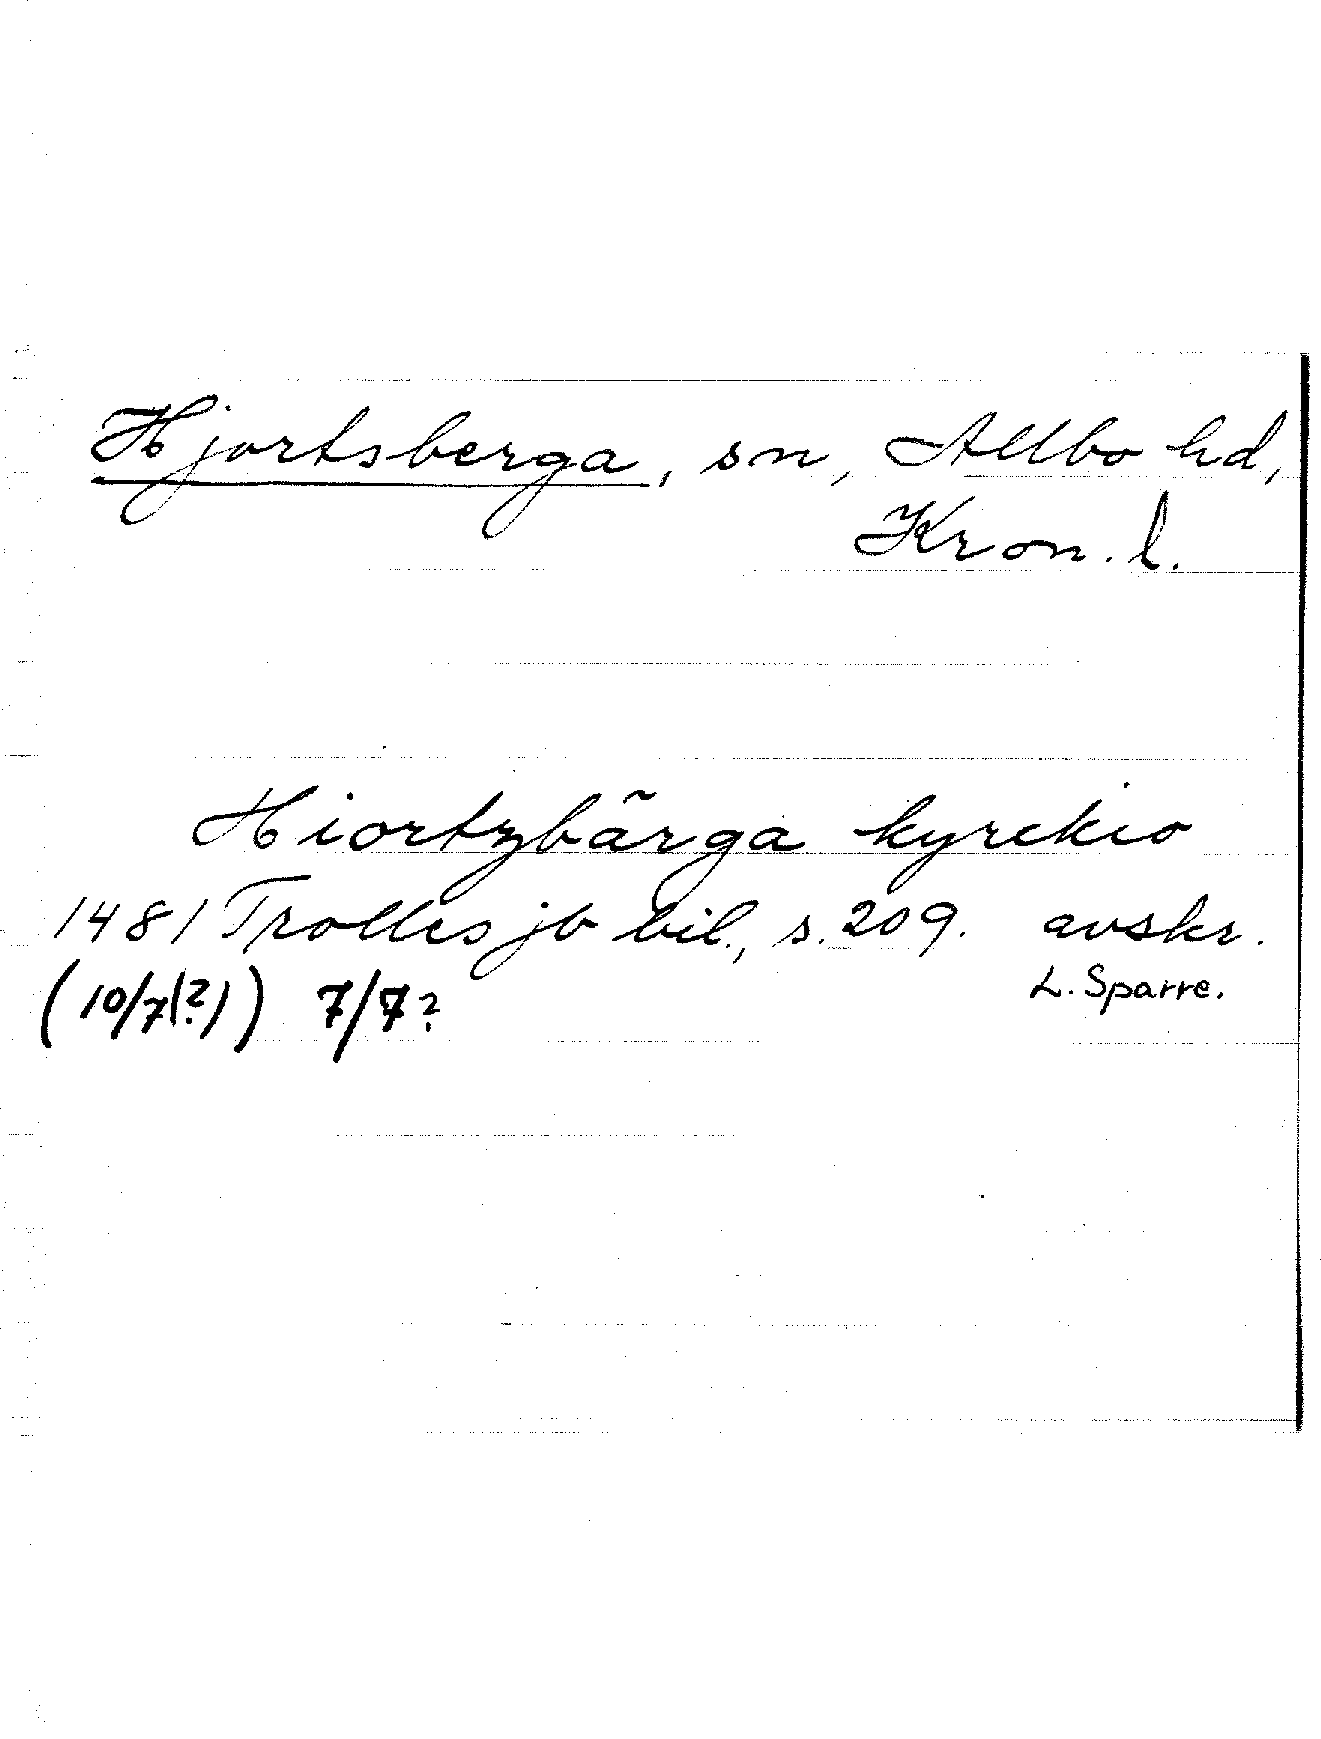 Hjortsberga, sn, Allbo hd,
Kron. l.
Hiortzbãrga kyrckio
1481 Trolles jb bil., s. 209. avskr.
L. Sparre.
(10/7(?)) 7/7?